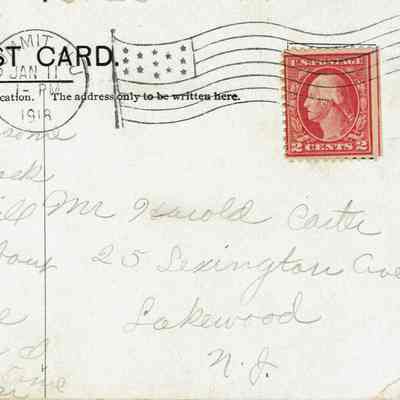 ST CARD.
MIT
JAN 11
1-PM
1918
cation. The address only to be written here.
U.S. POSTAGE
2 CENTS 2
some
Mr Harold Carter
25 Lexington Ave
Lakewood
N. J.